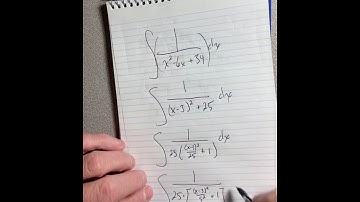 ∫ 1/(x²-6x+34) dx
∫ 1/((x-3)²+25) dx
∫ 1/(25((x-3)²/25+1)) dx
∫ 1/(25·[(x-3)²/5²+1])